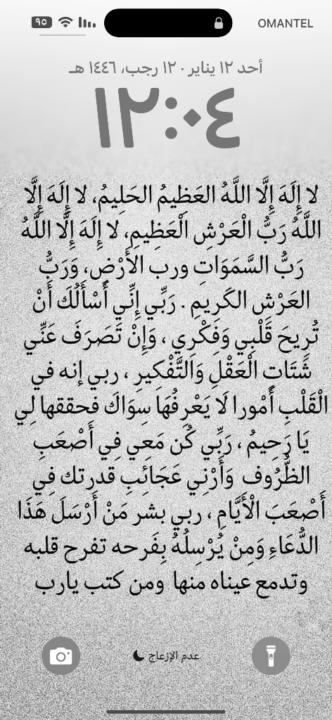 OMANTEL ٩٥
أحد ١٢ يناير · ١٢ رجب، ١٤٤٦ هـ
١٢:٠٤
لا إِلَهَ إِلَّا اللَّهُ العَظيمُ الحَلِيمُ، لا إِلَهَ إِلَّا
اللَّهُ رَبُّ الْعَرْشِ الْعَظِيمِ، لا إِلَهَ إِلَّا اللَّهُ
رَبُّ السَّمَوَاتِ ورب الأَرْضِ، وَرَبُّ
العَرْشِ الكَرِيمِ . رَبِّي إِنِّي أَسْأَلُكَ أَنْ
تُرِيحَ قَلْبِي وَفِكْرِي ، وَإِنْ تَصَرَفَ عَنِّي
شَتَاتِ الْعَقْلِ وَالتَّفْكِيرِ ، ربي إنه في
الْقَلْبِ أُمُورا لَا يَعْرِفُهَا سِوَاكَ فحققها لِي
يَا رَحِيمُ ، رَبِّي كُن مَعِي فِي أَصْعَبِ
الظُّرُوف وَأَرْنِي عَجَائِبِ قدرتك فِي
أَصْعَبَ الْأَيَّامِ ، ربي بشر مَنْ أَرْسَلَ هَذَا
الدُّعَاءِ وَمِنْ يُرْسِلُهُ بِفَرحه تفرح قلبه
وتدمع عيناه منها ومن كتب يارب
عدم الإزعاج